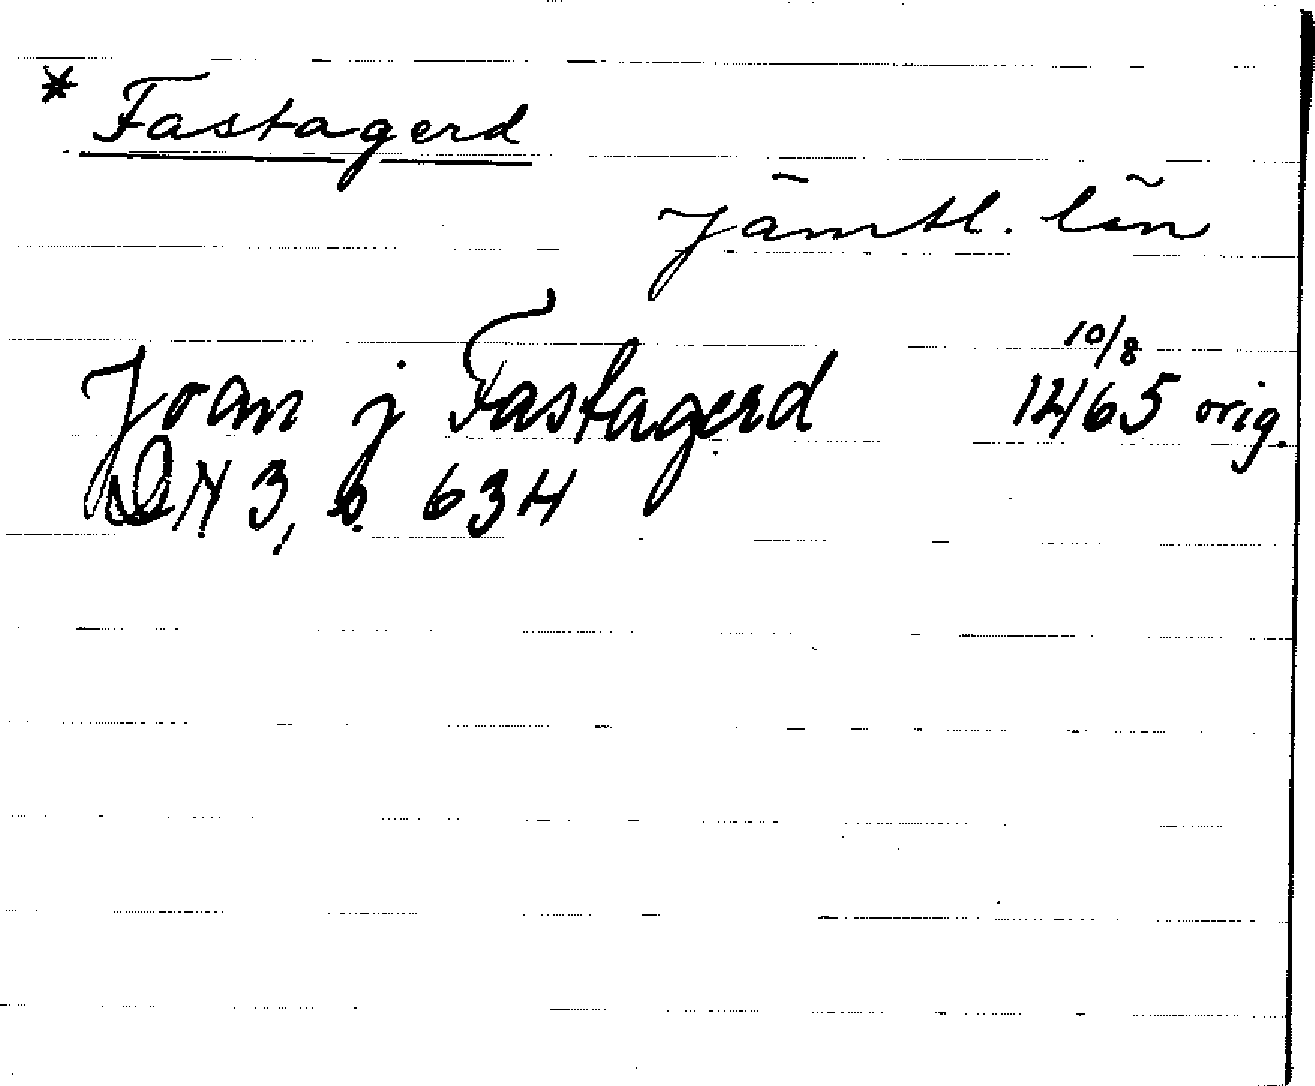 * Fastagerd
Jämtl. län
Joan j Fastagerd 10/8 1465 orig.
DN 3, s. 634